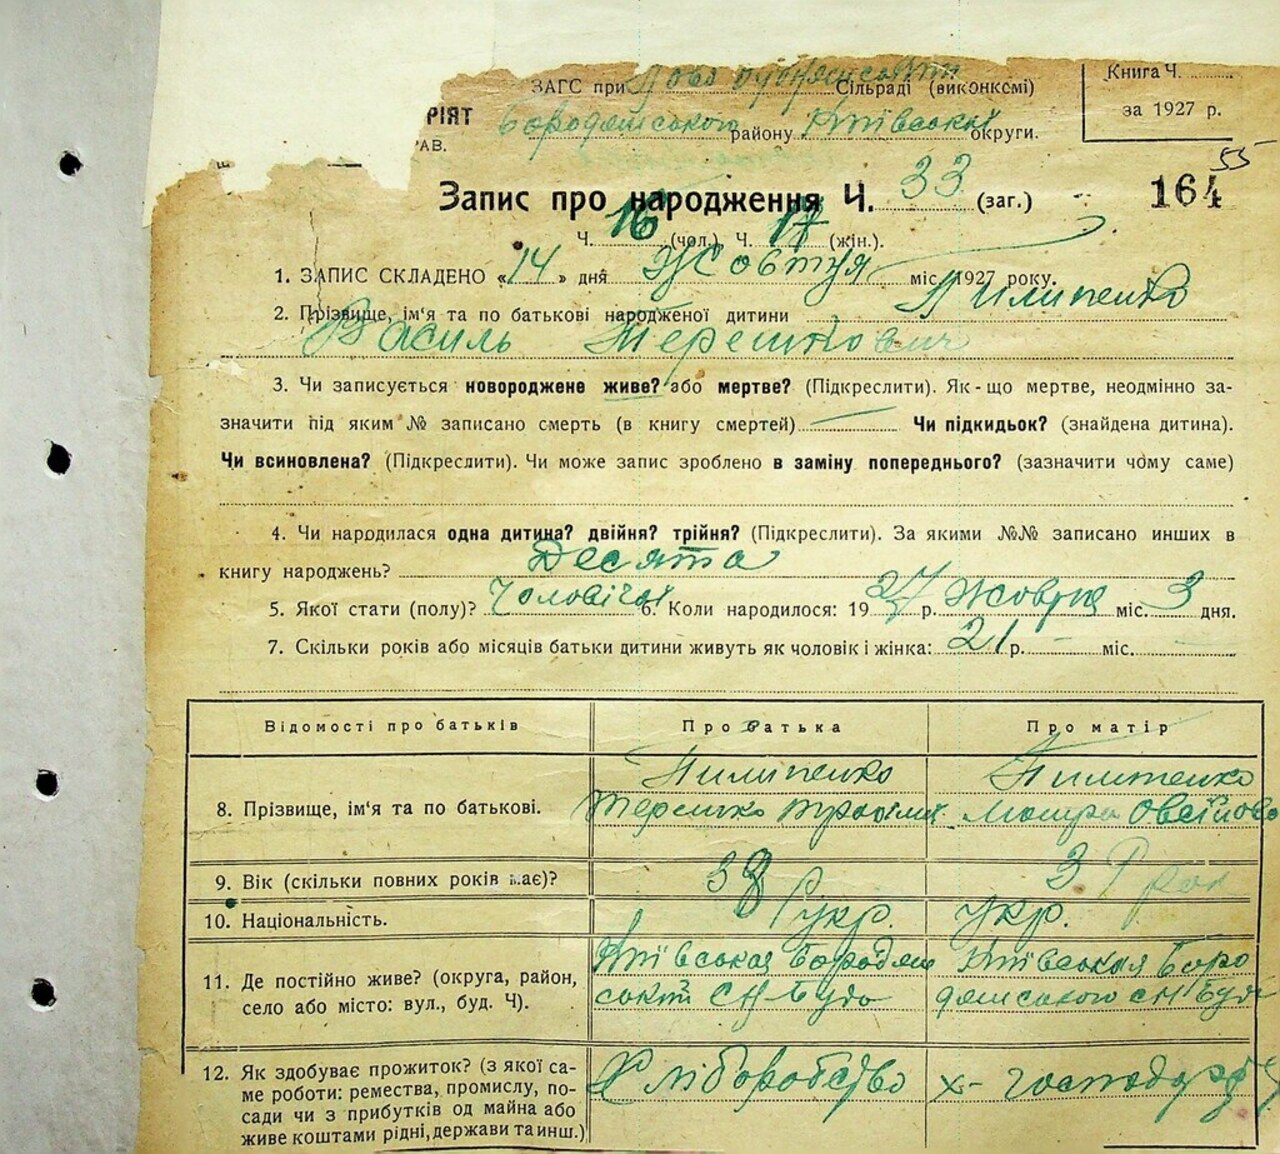 ЗАГС при Сільраді (виконкомі)
Книга Ч.
за 1927 р.
РІЯТ Бородянського району Київської округи.
АВ.
55
164
Запис про народження Ч. 33 (заг.)
Ч. 16 (чол.), Ч. 17 (жін.).
1. ЗАПИС СКЛАДЕНО «14» дня Жовтня міс. 1927 року.
2. Прізвище, ім'я та по батькові народженої дитини Пилипенко
Василь Терешкович
3. Чи записується новороджене живе? або мертве? (Підкреслити). Як-що мертве, неодмінно за-
значити під яким № записано смерть (в книгу смертей) Чи підкидьок? (знайдена дитина).
Чи всиновлена? (Підкреслити). Чи може запис зроблено в заміну попереднього? (зазначити чому саме)
4. Чи народилася одна дитина? двійня? трійня? (Підкреслити). За якими №№ записано инших в
книгу народжень? Десята
5. Якої стати (полу)? 6. Коли народилося: 1927 р. Жовтня міс. 3 дня.
7. Скільки років або місяців батьки дитини живуть як чоловік і жінка: 21 р. — міс. —
Відомості про батьків Про батька Про матір
8. Прізвище, ім'я та по батькові. Пилипенко Пилипенко
Терешко
9. Вік (скільки повних років має)?
10. Національність. укр. укр.
11. Де постійно живе? (округа, район,
село або місто: вул., буд. Ч).
Київська Бородян
ський Київська Боро
дянського
12. Як здобуває прожиток? (з якої са-
ме роботи: ремества, промислу, по-
сади чи з прибутків од майна або
живе коштами рідні, держави та инш.)
Хліборобство х-